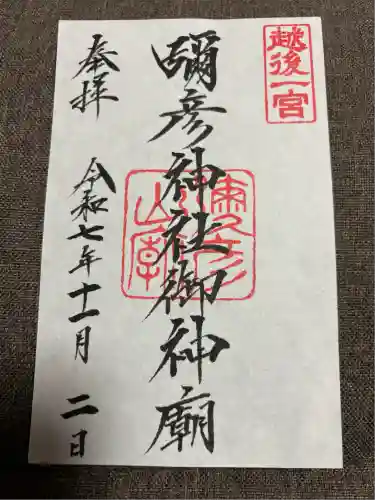 越後一宮
奉拝
彌彦神社御神廟
令和七年十一月二日